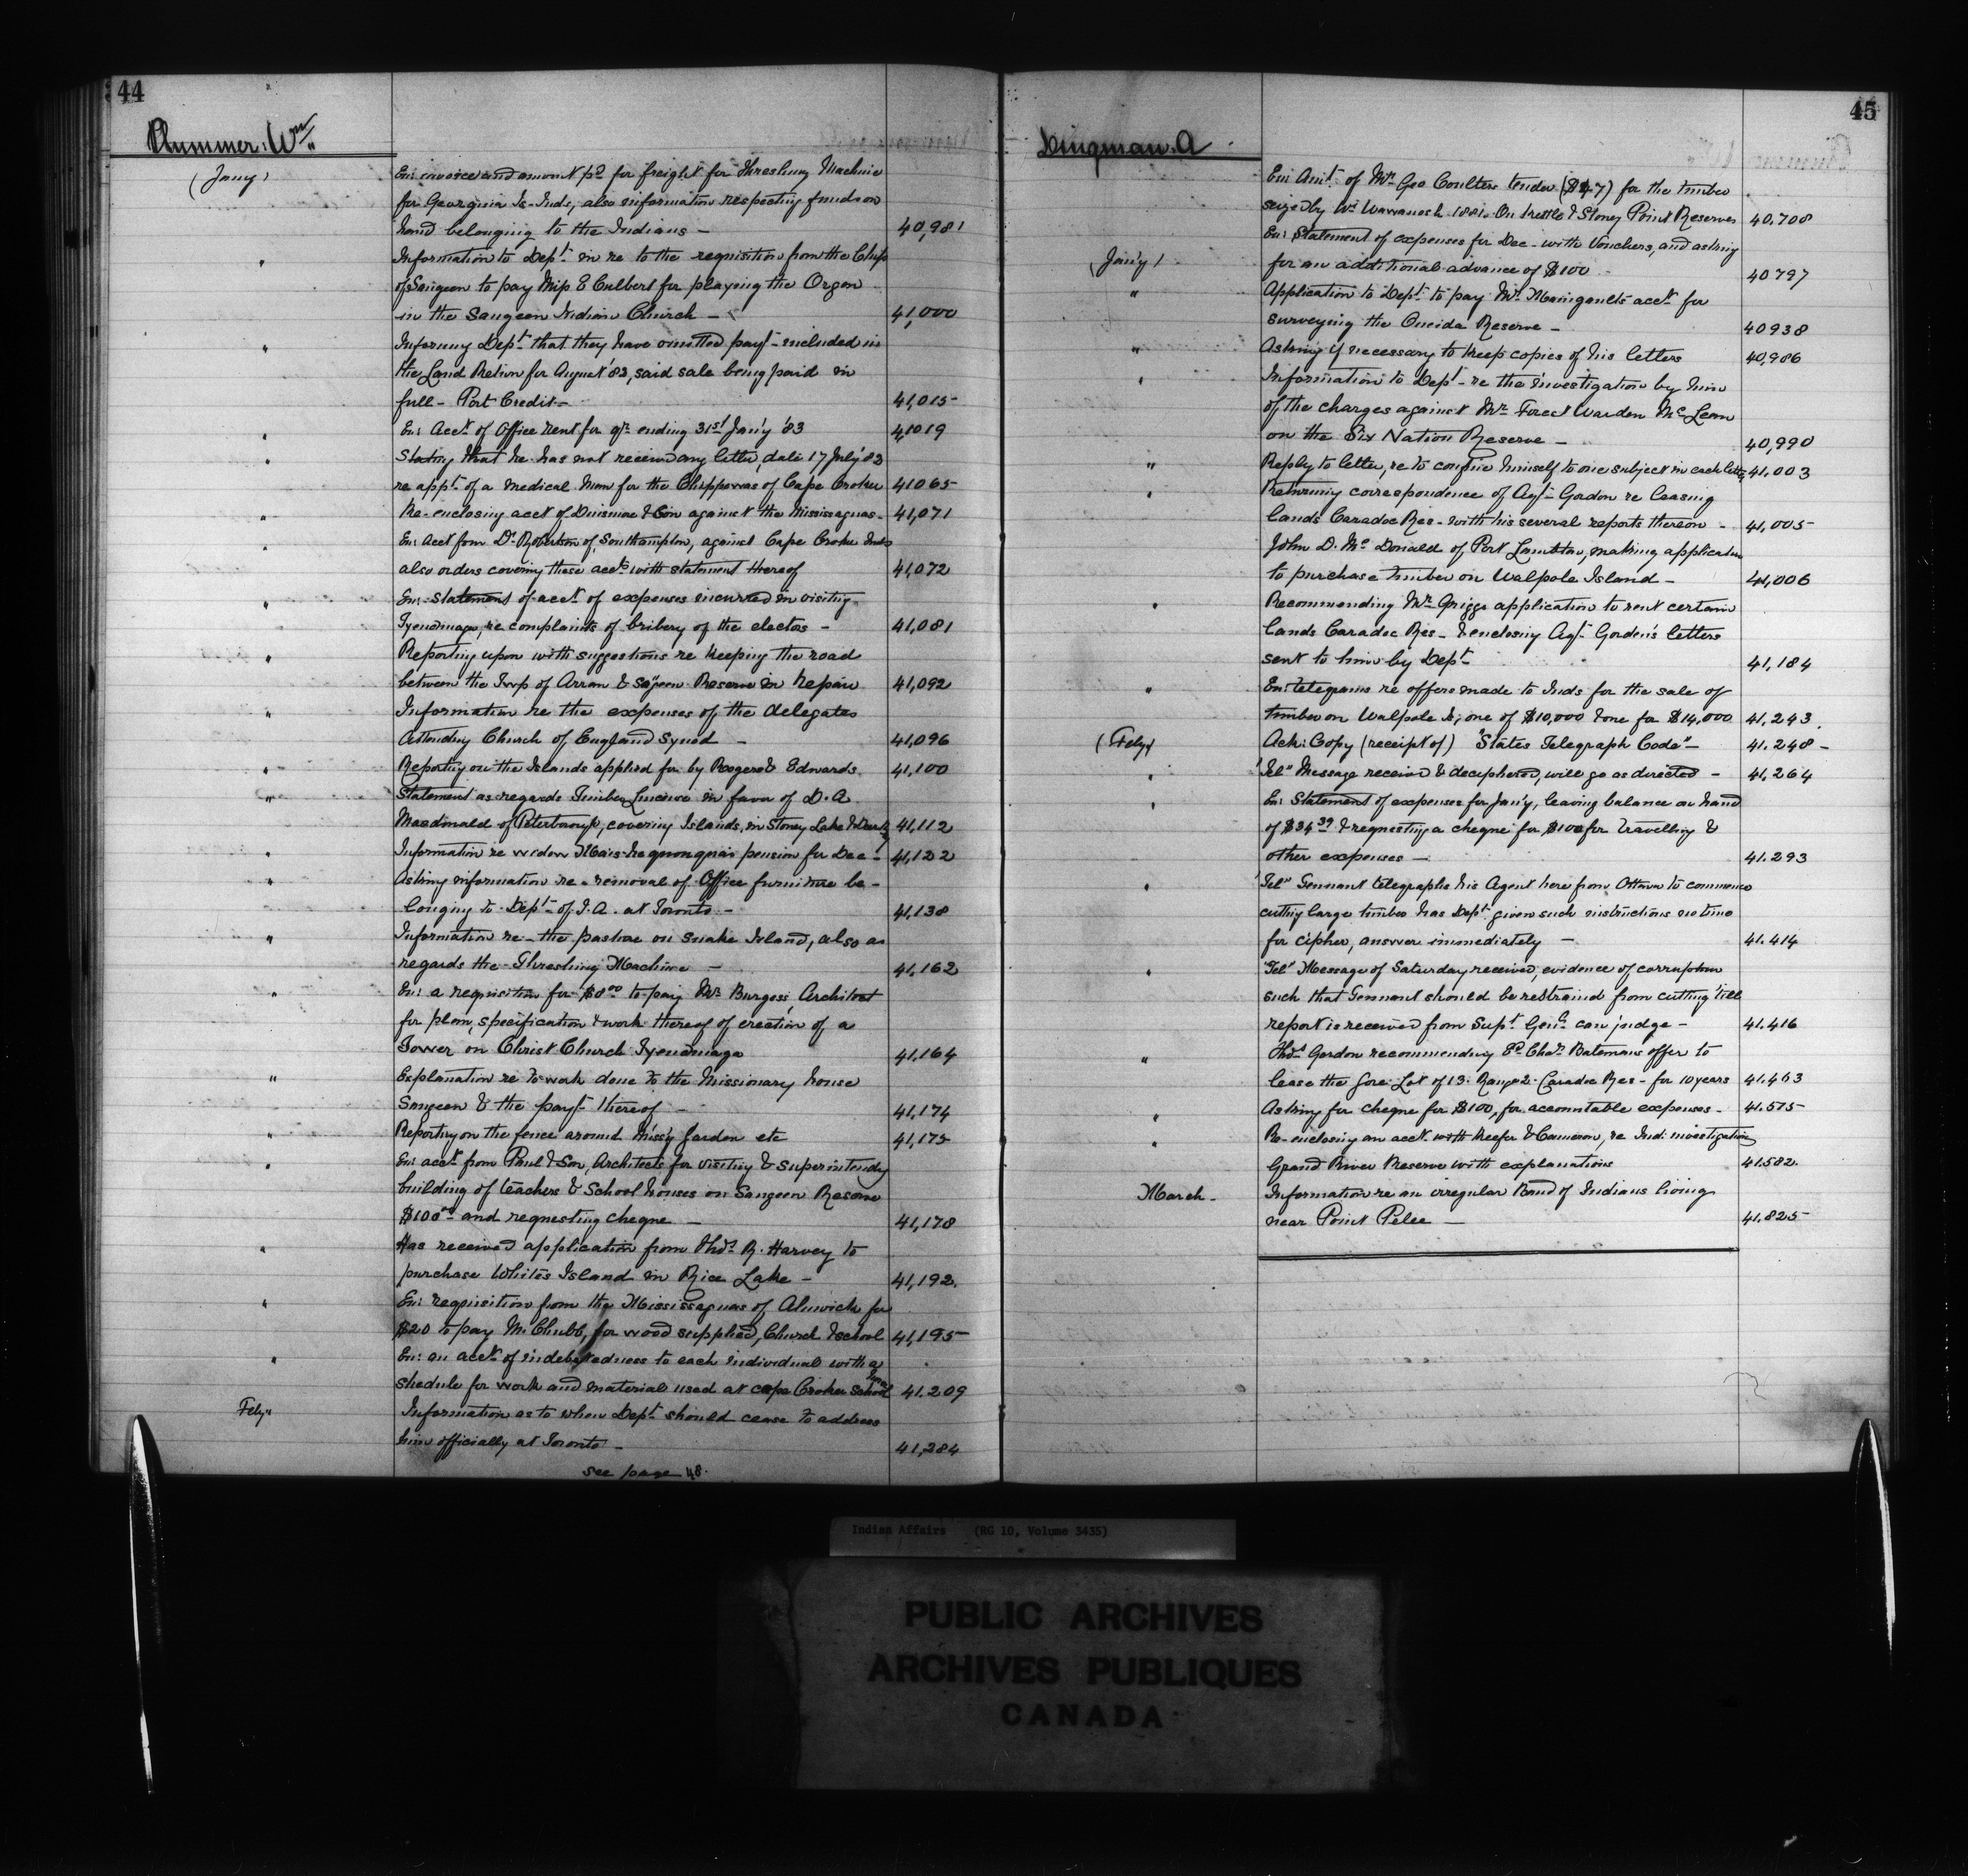 44
Plummer. Wm
(Jany)
En: invoice and amount pd for freight for Threshing Machine
for Georgina Is. Inds, also information respecting funds on
hand belonging to the Indians — 40,981
" Information to Dept in re to the requisition from the Chfs
of Saugeen to pay Miss E Culbert for playing the Organ
in the Saugeen Indian Church — 41,000
" Informg Dept that they have omitted payt included in
the Land Return for August '82, said sale being paid in
full — Port Credit — 41,015
" En: Acct of Office rent for qr. ending 31st Jany '83 41019
" Stating that he has not received any letter, date 17 July '82
re appt of a medical man for the Chippewas of Cape Croker 41065
" Re-enclosing acct of Dinsmore & Son against the Mississaguas 41,071
" En: Acct from Dr Robertson of Southampton, against Cape Croker Inds
also orders covering these accts with statement thereof 41,072
" En: statement of acct of expenses incurred in visiting
Tyendinaga, re complaints of bribery of the electors — 41,081
" Reporting upon with suggestions re keeping the road
between the Twp of Arran & Saugeen Reserve in repair 41,092
" Information re the expenses of the delegates
Attending Church of England Synod — 41,096
" Reporting on the Islands applied for by Rogers & Edwards 41,100
" Statement as regards Timber License in favor of D. A.
Macdonald of Peterborough, covering Islands, in Stoney Lake 41,112
" Information re widow pension for Dec — 41,122
" Asking information re removal of Office furniture be-
longing to Dept of I. A. at Toronto — 41,138
" Information re the pasture on Snake Island, also as
regards the Threshing Machine — 41,162
" En: a requisition for $8.00 to pay Mr Burgess, Architect
for plan, specification & work thereof of erection of a
Tower on Christ Church Tyendinaga 41,164
" Explanation re to work done to the Missionary house
Saugeen & the payt thereof — 41,174
" Reporting on the fence around Missy Garden etc 41,175
" En: acct from Paul & Son, Architects for visiting & superintendg
building of teachers & School houses on Saugeen Reserve
$100.00 and requesting cheque — 41,178
" Has received application from Thos. R. Harvey to
purchase White's Island in Rice Lake — 41,192.
" En: requisition from the Mississaguas of Alnwick for
$20 to pay M. Chubb, for wood supplied, Church & school 41,195
" En: an acct of indebtedness to each individual with a
shedule for work and material used at Cape Croker School 41.209
Feby Information as to when Dept should cease to address
him officially at Toronto — 41,284
see page 48.
45
Dingman. A
En: Amt of Mr. Geo Coulters tender ($47) for the timber
seized by Wm Wawanosh 1881. On Kettle & Stoney Point Reserves 40.708
En: Statement of expenses for Dec. with Vouchers, and asking
(Jany) for an additional advance of $100 40797
" Application to Dept to pay Mr. acct for
surveying the Oneida Reserve — 40938
" Asking if necessary to keep copies of his letters 40,986
" Information to Dept re the investigation by him
of the charges against Mr. Forest Warden McLean
on the Six Nation Reserve — 40,990
" Reply to letter, re to confine himself to one subject in each letter 41,003
" Returning correspondence of Agt Gordon re leasing
lands Caradoc Res — with his several reports thereon — 41,005
John D. McDonald of Port Lambton, making application
to purchase timber on Walpole Island — 41,006
" Recommending Mr. Griggs application to rent certain
lands Caradoc Res — & enclosing Agt Gordon's letters
sent to him by Dept 41,184
" En: telegrams re offers made to Inds for the sale of
timber on Walpole Is; one of $10,000 & one for $14,000 41,243.
(Feby) Ack: Copy (receipt of) "States Telegraph Code" — 41.248 —
" "Tel" Message received & deciphered, will go as directed — 41,264
" En: Statement of expenses for Jany, leaving balance on hand
of $34.39 & requesting a cheque for $100 for travelling &
other expenses — 41.293
" "Tel" Tennant telegraphs his Agent here from Ottawa to commence
cutting large timber has Dept given such instructions no time
for cipher, answer immediately — 41.414
" "Tel" Message of Saturday received, evidence of corruption
such that Tennant should be restrained from cutting 'till
report is received from Supt. Genl. can judge — 41.416
" Thos. Gordon recommending Chas. Batemans offer to
lease the Gore Lot of 13. Range 2. Caradoc Res — for 10 years 41.463
" Asking for cheque for $100, for accountable expenses — 41.575
" Re-enclosing an acct. with Keefer & Cameron, re Ind: investigation
Grand River Reserve with explanations 41.582.
March — Information re an irregular Band of Indians living
near Point Pelee — 41.825
Indian Affairs (RG 10, Volume 3435)
PUBLIC ARCHIVES
ARCHIVES PUBLIQUES
CANADA